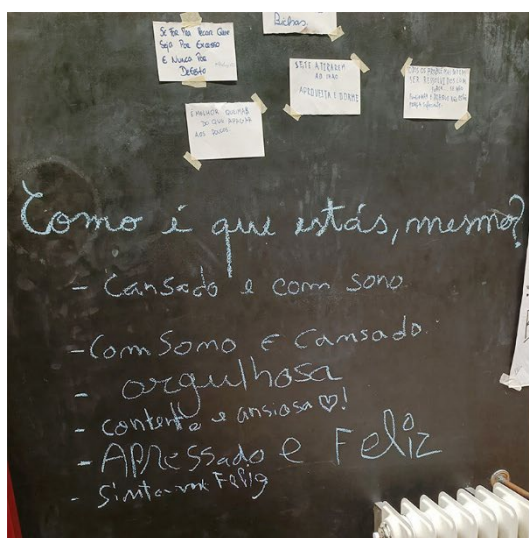 Bichas
SE FOR PRA PECAR QUE
SEJA POR EXCESSO
E NUNCA POR
DEFEITO
SE TE ATIRAREM
AO CHÃO
APROVEITA E DORME
É MELHOR QUEIMAR
DO QUE APAGAR
AOS POUCOS
Como é que estás, mesmo?
- Cansado e com sono
- Com Sono E Cansado
- orgulhosa
- contente e ansiosa ♡!
- APRESSado e Feliz
- Sinto-me Feliz